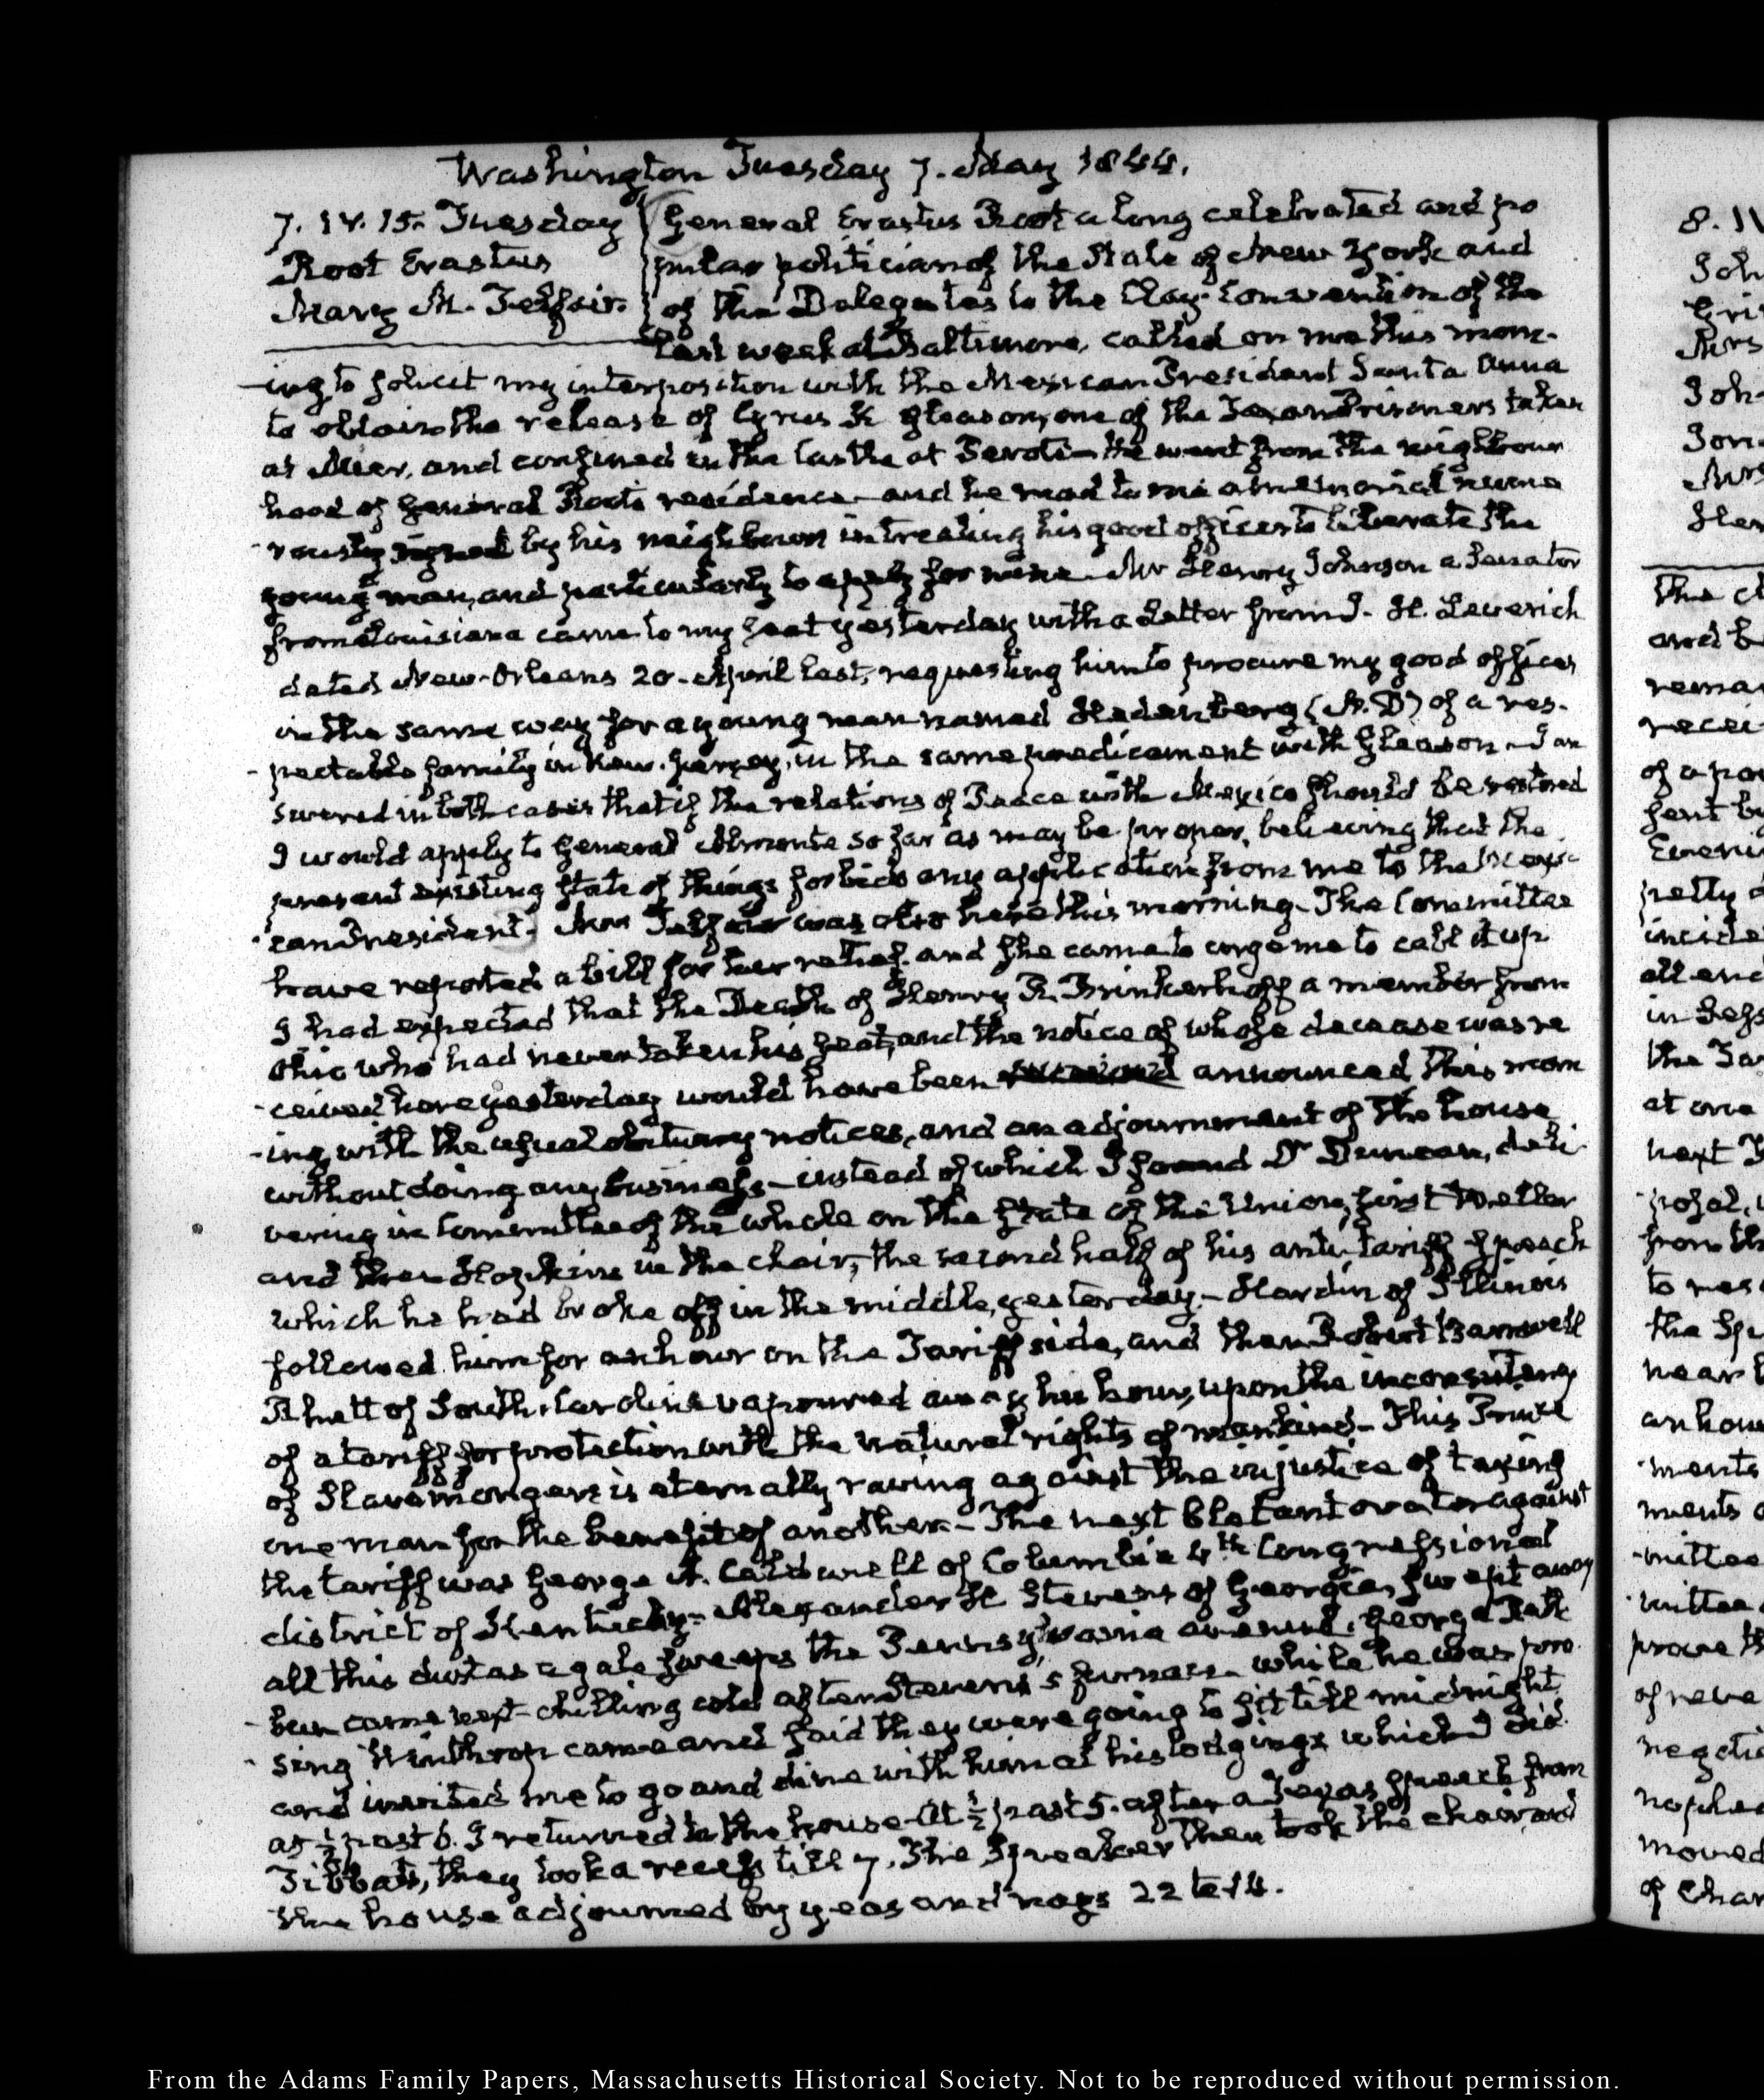 Washington Tuesday 7. May 1844.
7. IV. 15. Tuesday
Root Erastus
Mary M. Telfair.
General Erastus Root a long celebrated and po
pular politician of the State of New York and
of the Delegates to the Clay-Convention of the
last week at Baltimore, called on me this morn-
ing to solicit my interposition with the Mexican President Santa Anna
to obtain the release of Cyrus K Gleason, one of the Texan Prisoners taken
at Mier, and confined in the Castle at Perote— He went from the neighbour
hood of General Root's residence— and he read to me a memorial nume
rously signed by his neighbours intreating his good offices to liberate the
young man, and particularly to apply for mine. Mr Henry Johnson a Senator
from Louisiana came to my seat yesterday with a Letter from J. H. Leverich
dated New-Orleans 20. April last, requesting him to procure my good offices
in the same way for a young man named Hedenberg (M. D) of a res-
pectable family in New-Jersey, in the same predicament with Gleason— I an
swered in both cases that if the relations of Peace with Mexico should be restored
I would apply to General Almonte so far as may be proper, believing that the
present existing state of things forbids any application from me to the Mexi-
can President. Mrs Telfair was also here this morning— The Committee
have reported a bill for her relief, and she came to urge me to call it up
I had expected that the Death of Henry R. Brinkerhoff a member from
Ohio who had never taken his seat, and the notice of whose decease was re
ceived here yesterday would have been announced this morn
ing, with the usual obituary notices, and an adjournment of the house
without doing any business— instead of which I found Dr Duncan, deli
vering in Committee of the whole on the state of the Union, first Weller
and then Hopkins in the chair, the second half of his anti-tariff speech
which he had broke off in the middle, yesterday— Hardin of Illinois
followed him for an hour on the Tariff side, and then Robert Barnwell
Rhett of South-Carolina vapoured away his hour, upon the inconsistency
of a tariff for protection with the natural rights of mankind— This Prince
of Slavemongers is eternally raving against the injustice of taxing
one man for the benefit of another— The next blatant orator against
the tariff was George A. Caldwell of Columbia 4th Congressional
district of Kentucky— Alexander H Stevens of Georgia, swept away
all this dust as a gale sweeps the Pennsylvania avenue. George Rath
bun came next— chilling cold after Stevens's furnace— while he was pro
sing Winthrop came and said they were going to sit till midnight
and invited me to go and dine with him at his lodgings which I did
at ½ past 6. I returned to the house— At ½ past 5. after a Texas speech from
Tibbats, they took a recess till 7. The Speaker then took the chair and
the house adjourned by yeas and nays 22 to 14.
8. IV
Joh
Gri
Mrs
Joh
Jon
Mrs
the c
and b
rema
recei
of a pa
sent b
pretty
incide
all end
in
the
at one
next
from th
to
the Spe
near
an hou
ments
ments
mittee
mittee
prove th
of reve
negotia
no plea
moved
of Char
From the Adams Family Papers, Massachusetts Historical Society. Not to be reproduced without permission.